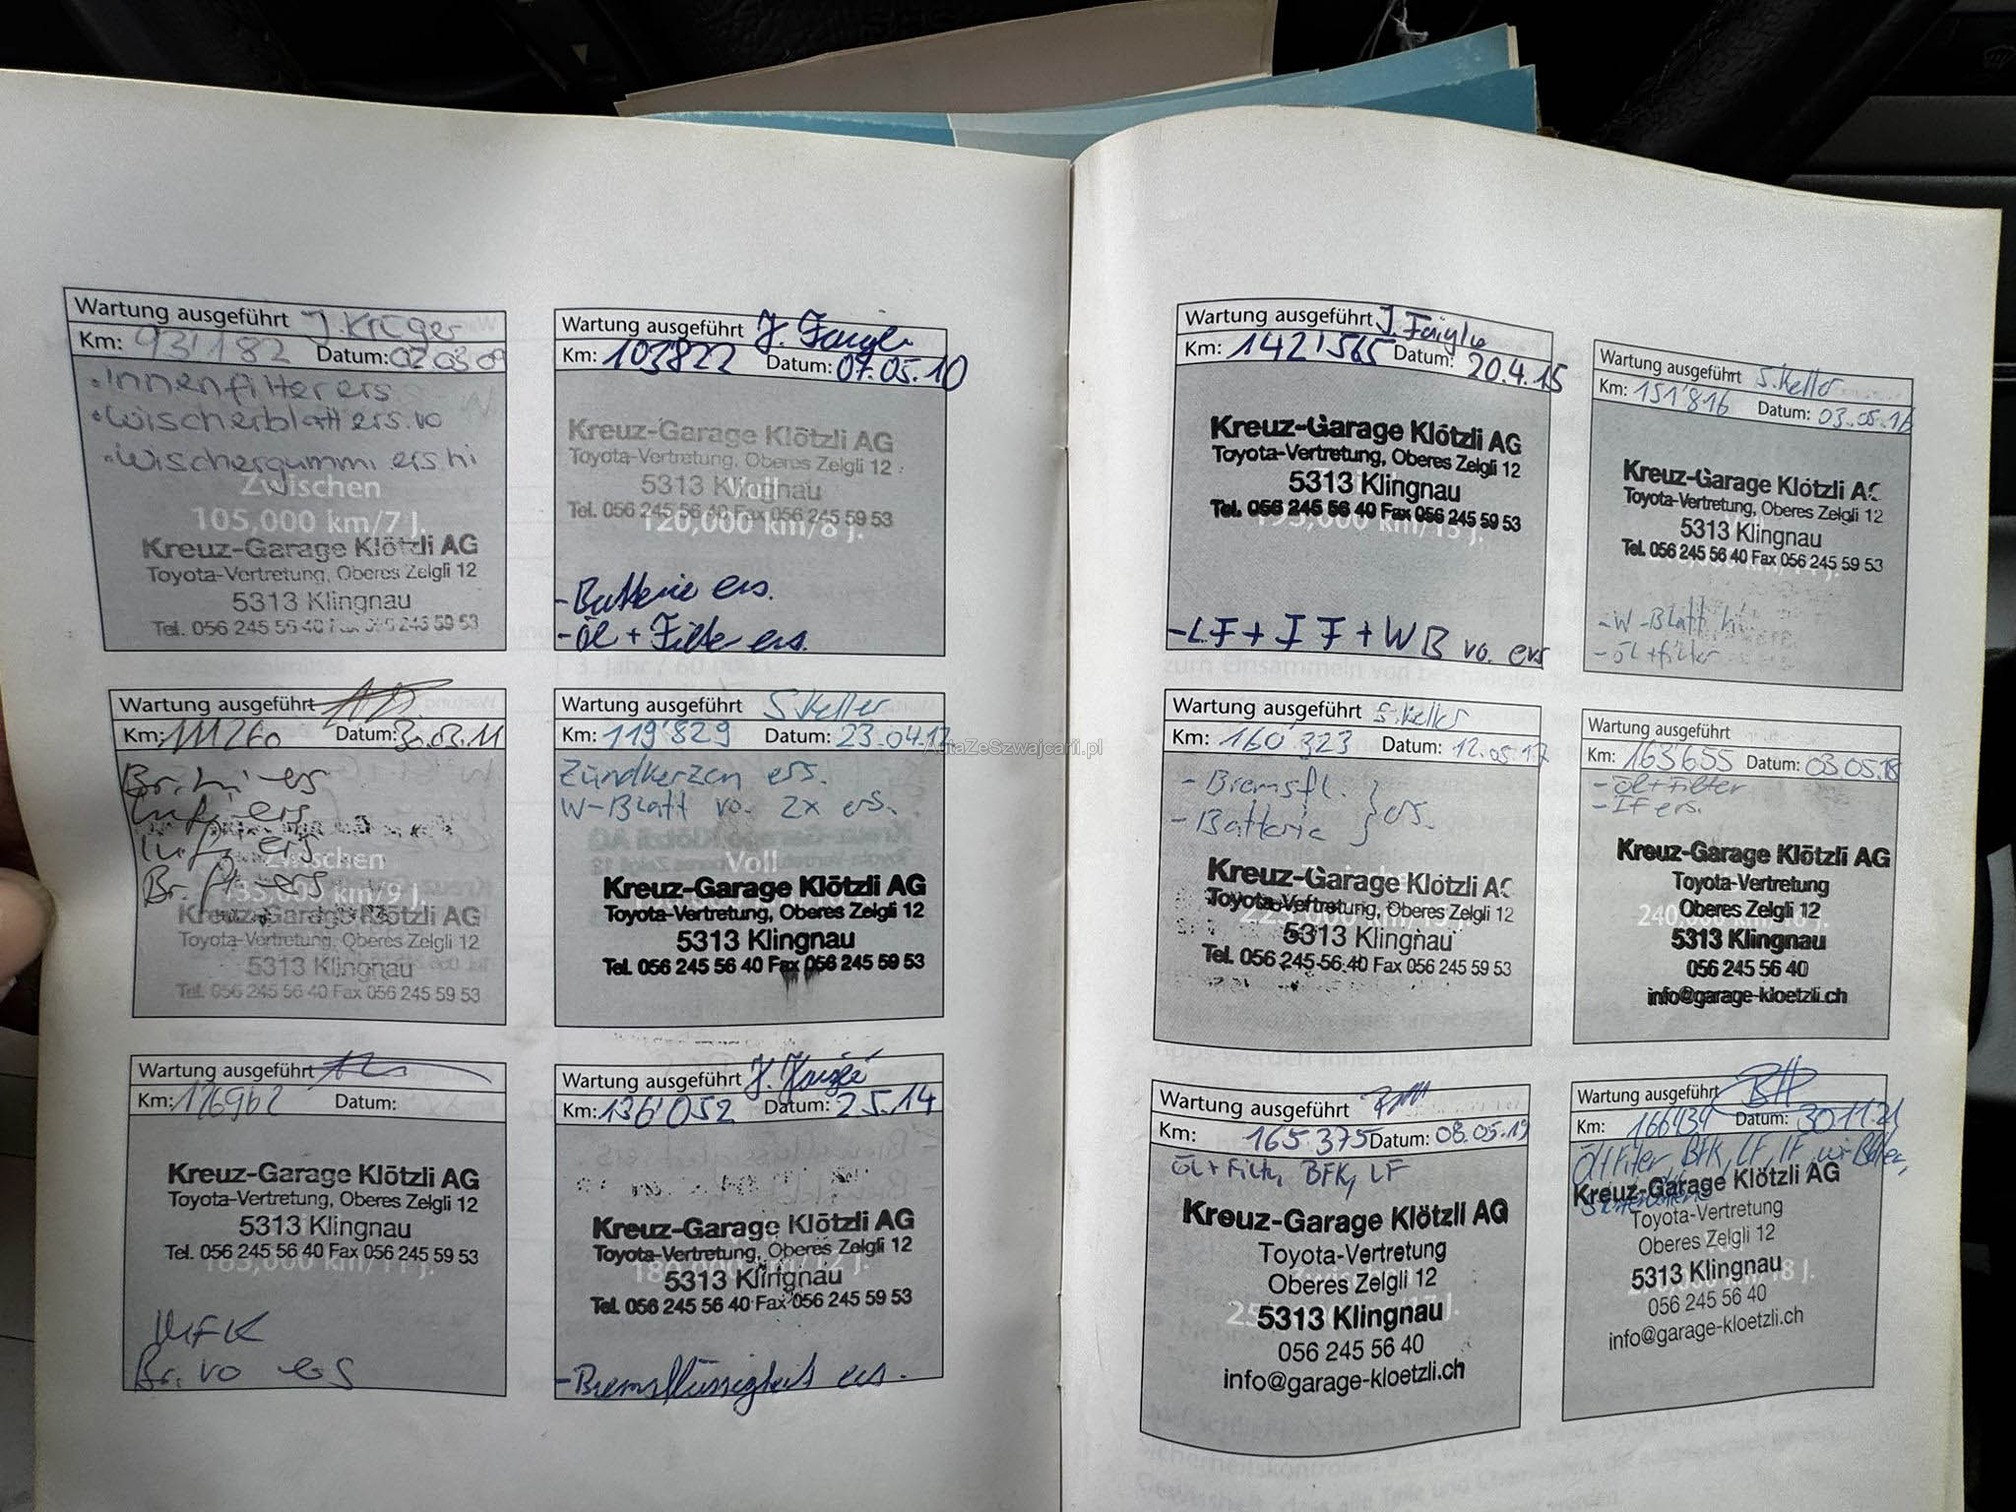 Wartung ausgeführt J. Krüger
Km: 93'182 Datum: 02.03.09
• Innenfilter ers
• Wischerblatt ers. vo
• Wischergummi ers hi
Zwischen
105,000 km/7 J.
Kreuz-Garage Klötzli AG
Toyota-Vertretung, Oberes Zelgli 12
5313 Klingnau
Tel. 056 245 56 40 Fax 056 245 59 53
Wartung ausgeführt
Km: 103822 Datum: 07.05.10
Kreuz-Garage Klötzli AG
Toyota-Vertretung, Oberes Zelgli 12
5313 Klingnau
Voll
Tel. 056 245 56 40 Fax 056 245 59 53
120,000 km/8 J.
- Batterie ers.
- Öl + Filter ers.
Wartung ausgeführt
Km: 111260 Datum: 30.03.11
Br. hi ers
Luft ers
ers
Br. fl. ers
Zwischen
135,000 km/9 J.
Kreuz-Garage Klötzli AG
Toyota-Vertretung, Oberes Zelgli 12
5313 Klingnau
Tel. 056 245 56 40 Fax 056 245 59 53
Wartung ausgeführt S. Keller
Km: 119'829 Datum: 23.04.12
Zündkerzen ers.
W-Blatt vo. 2x ers.
Voll
Kreuz-Garage Klötzli AG
Toyota-Vertretung, Oberes Zelgli 12
5313 Klingnau
Tel. 056 245 56 40 Fax 056 245 59 53
Wartung ausgeführt
Km: 126962 Datum:
Kreuz-Garage Klötzli AG
Toyota-Vertretung, Oberes Zelgli 12
5313 Klingnau
Tel. 056 245 56 40 Fax 056 245 59 53
165,000 km/11 J.
MFK
Br. vo ers
Wartung ausgeführt
Km: 136'052 Datum: 2.5.14
Kreuz-Garage Klötzli AG
Toyota-Vertretung, Oberes Zelgli 12
5313 Klingnau
180,000 km/12 J.
Tel. 056 245 56 40 Fax 056 245 59 53
- Bremsflüssigkeit ers.
Wartung ausgeführt J. Faigle
Km: 142'565 Datum: 20.4.15
Kreuz-Garage Klötzli AG
Toyota-Vertretung, Oberes Zelgli 12
5313 Klingnau
Tel. 056 245 56 40 Fax 056 245 59 53
195,000 km/13 J.
- LF + IF + WB vo. ers
Wartung ausgeführt S. Keller
Km: 151'816 Datum: 03.05.16
Kreuz-Garage Klötzli AG
Toyota-Vertretung, Oberes Zelgli 12
5313 Klingnau
Tel. 056 245 56 40 Fax 056 245 59 53
- W-Blatt hi.
- Öl + Filter
Wartung ausgeführt S. Keller
Km: 160'323 Datum: 12.05.17
- Bremsfl.
- Batterie } ers.
Kreuz-Garage Klötzli AG
Toyota-Vertretung, Oberes Zelgli 12
5313 Klingnau
Tel. 056 245 56 40 Fax 056 245 59 53
Wartung ausgeführt
Km: 163'655 Datum: 03.05.18
- Öl + Filter
- IF ers.
Kreuz-Garage Klötzli AG
Toyota-Vertretung
Oberes Zelgli 12
5313 Klingnau
056 245 56 40
info@garage-kloetzli.ch
Wartung ausgeführt
Km: 165.375 Datum: 08.05.19
Öl + Filter, BFK, LF
Kreuz-Garage Klötzli AG
Toyota-Vertretung
Oberes Zelgli 12
5313 Klingnau
056 245 56 40
info@garage-kloetzli.ch
Wartung ausgeführt
Km: 166434 Datum: 30.11.21
Öl + Filter, BFK, LF, IF,
Kreuz-Garage Klötzli AG
Toyota-Vertretung
Oberes Zelgli 12
5313 Klingnau
056 245 56 40
info@garage-kloetzli.ch
AutaZeSzwajcarii.pl